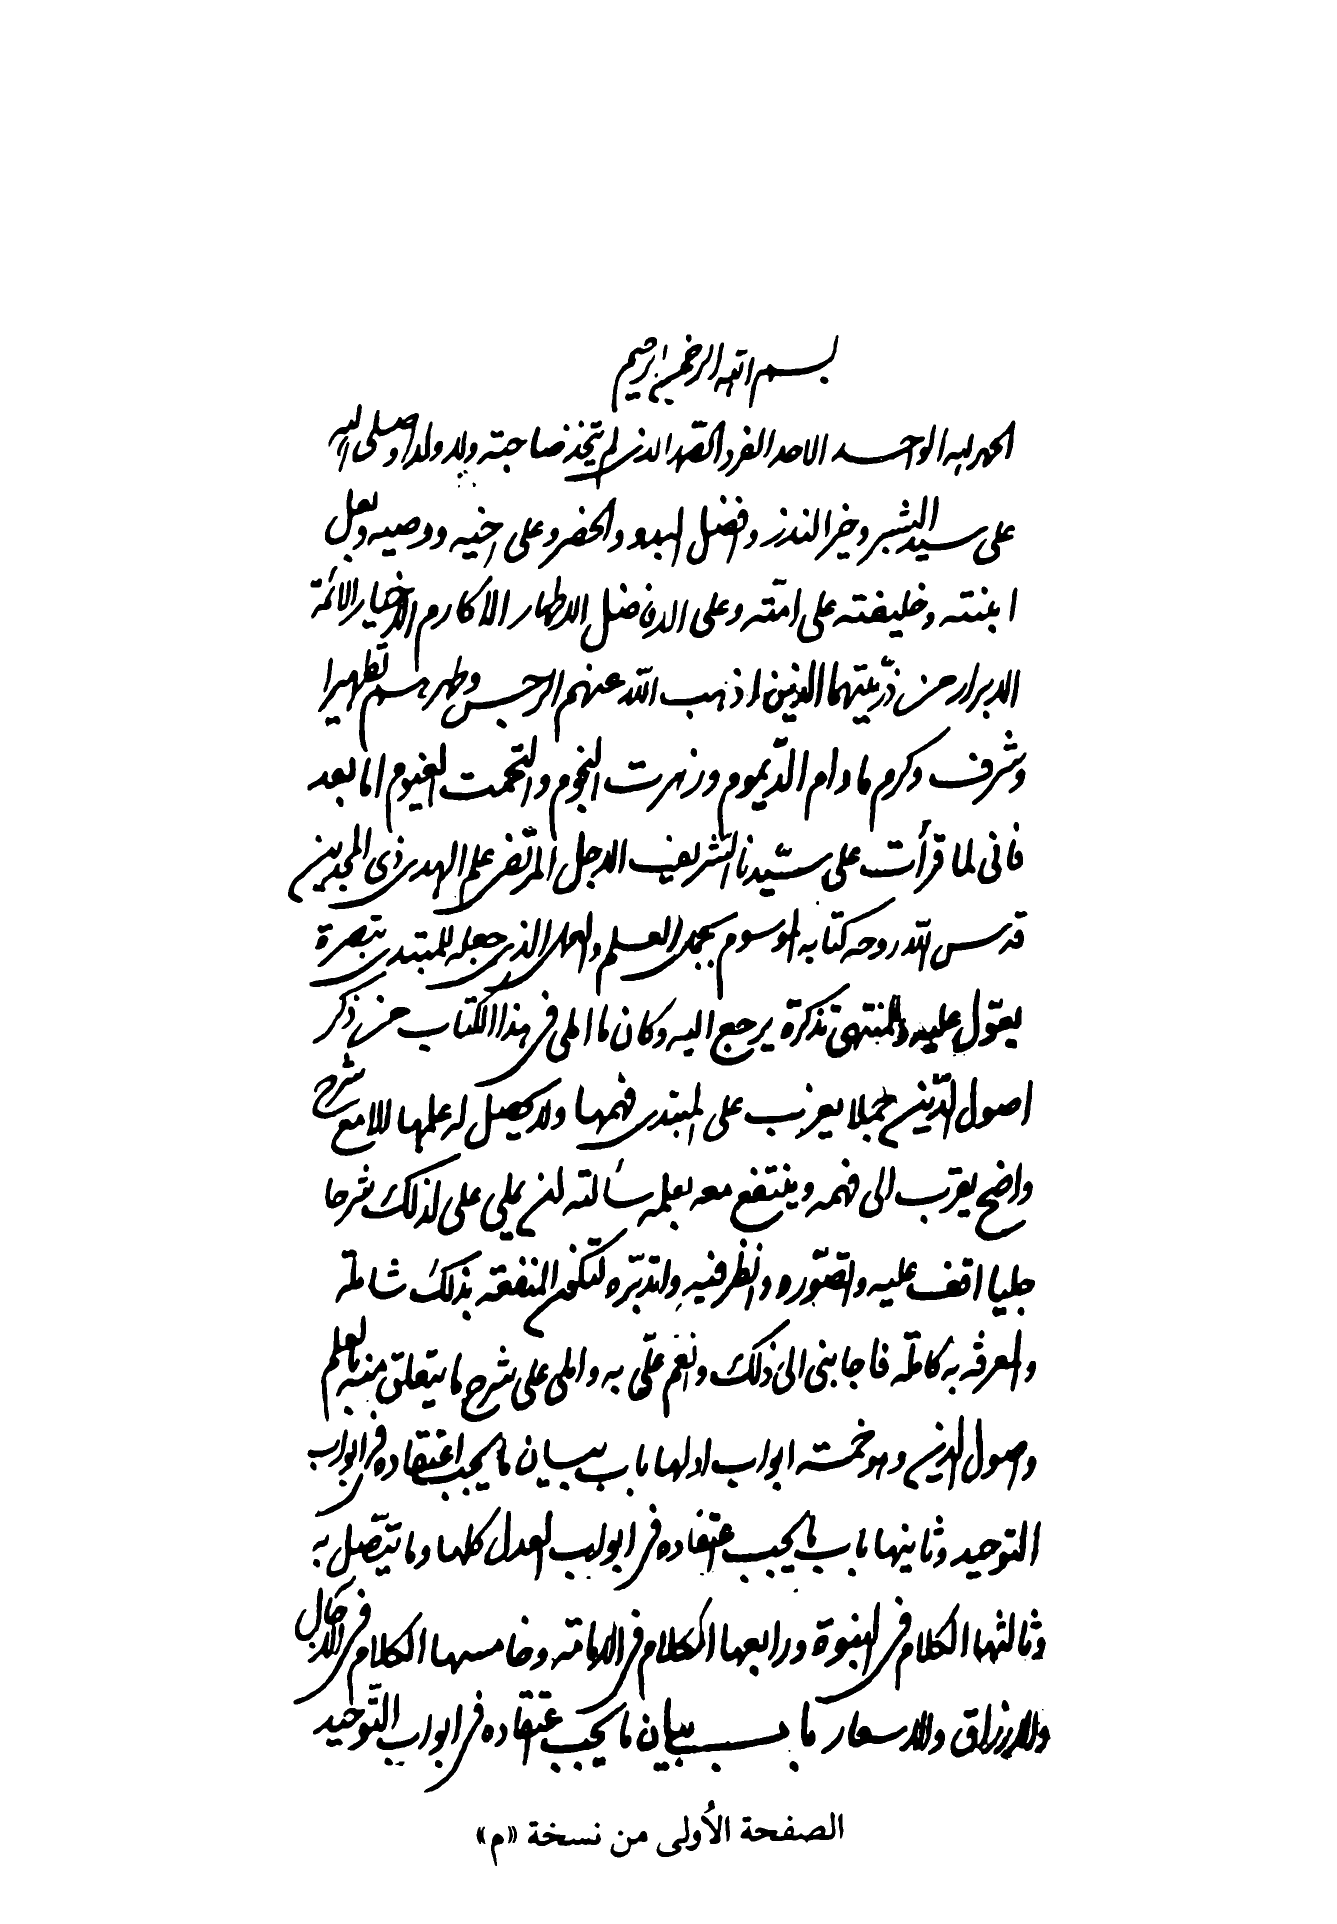 بسم الله الرحمن الرحيم
الحمد لله الواحد الاحد الفرد الصمد الذى لم يتخذ صاحبته ولا ولدا وصلى الله
على سيد البشر وخير النذر وافضل البدو والحضر وعلى اخيه ووصيه وبعل
ابنته وخليفته على امّته وعلى الافاضل الاطهار الاكارم الاخيار الائمّة
الابرار من ذرّيتهما الذين اذهب الله عنهم الرجس وطهرهم تطهيرا
وشرف وكرم ما دام الدّيموم وزهرت النجوم والتحمت الغيوم اما بعد
فانى لما قرأت على سيّدنا الشريف الاجل المرتضى علم الهدى ذى المجدين
قدس الله روحه كتابه الموسوم بجمل العلم والعمل الذى جعله للمبتدى تبصرة
يعوّل عليه وللمنتهى تذكرة يرجع اليه وكان ما املى فى هذا الكتاب من ذكر
اصول الدّين جملا يعزب على المبتدى فهمها ولا يحصل له علمها الا مع شرح
واضح يقرب الى فهمه وينتفع معه بعلمه سألته ان يملي على لذلك شرحا
جليا اقف عليه واتصوّره وانظر فيه واتدبّره لتكون المنفعة بذلك شاملة
والمعرفة به كاملة فاجابنى الى ذلك وانعم علّى به واملى على شرح ما يتعلق منه بالعلم
واصول الدين وهو خمسة ابواب اولها باب بيان ما يجب اعتقاده فى ابواب
التوحيد وثانيها باب ما يجب اعتقاده فى ابواب العدل كلها وما يتّصل به
وثالثها الكلام فى النبوة ورابعها الكلام فى الامامة وخامسها الكلام فى الآجال
والارزاق والاسعار باب بيان ما يجب اعتقاده فى ابواب التّوحيد
الصفحة الأولى من نسخة «م»